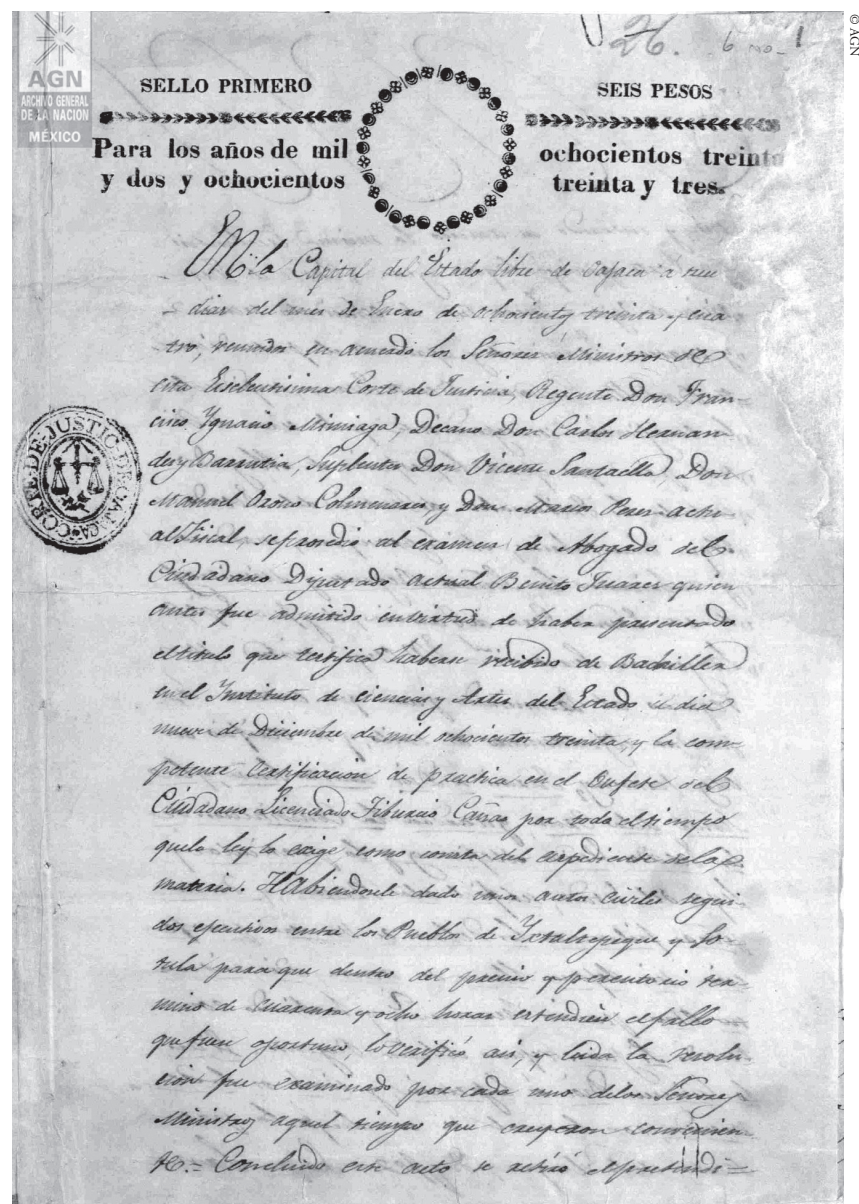 © AGN
AGN
ARCHIVO GENERAL
DE LA NACION
MÉXICO
26.
SELLO PRIMERO
SEIS PESOS
Para los años de mil
y dos y ochocientos
ochocientos treinta
treinta y tres.
CORTE DE JUSTIC. DE OAJACA
En la Capital del Estado libre de Oajaca a
dias del mes de Enero de ochocientos treinta y cua-
tro, reunidos en acuerdo los Señores Ministros de
esta Exselentisima Corte de Justicia, Regente Don Fran-
cisco Ygnacio Mimiaga, Decano Don Carlos Hernan-
dez y Barrutia, Suplentes Don Vicente Santaella, Don
Manuel Orosco Colmenares y Don Marcos Perez actu-
al Fiscal, se prosedio al exámen de Abogado del
Ciudadano Diputado actual Benito Juarez quien
antes fue admitido en virtud de haber presentado
el titulo que certifica haberse recibido de Bachiller
en el Instituto de ciencias y Artes del Estado el dia
nueve de Diciembre de mil ochocientos treinta, y la com-
petente certificacion de practica en el Bufete del
Ciudadano Licenciado Tiburcio Cañas por todo el tiempo
que la ley lo exige, como consta del expediente de la
materia. Habiendosele dado unos autos civiles segui-
dos ejecutivos entre los Pueblos de Yxtaltepeque y So-
tula para que dentro del preciso y perentorio ter-
mino de cuarenta y ocho horas estendiera el fallo
que fuere oportuno, lo verificó asi, y leida la resolu-
cion fue examinado por cada uno de los Señores
Ministros aquel tiempo que creyeron convenien-
te.= Concluido este acto se retiró el pretendi=